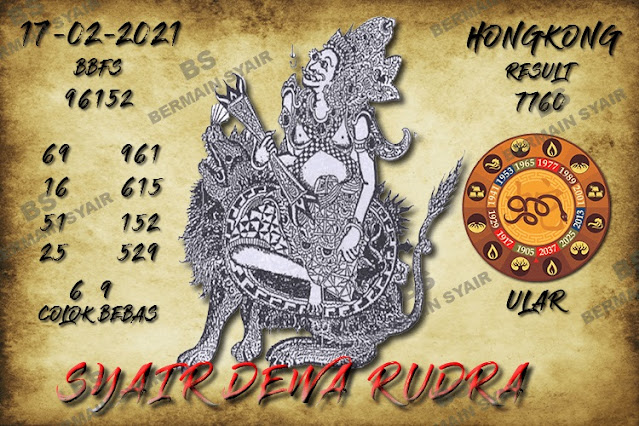 17-02-2021
BBFS
96152
69 961
16 615
51 152
25 529
6 9
COLOK BEBAS
HONGKONG
RESULT
7760
1929 1941 1953 1965 1977 1989 2001 2013 2025 2037 1905 1917
ULAR
SYAIR DEWA RUDRA
BS
BERMAIN SYAIR
BS
BERMAIN SYAIR
BERMAIN SYAIR
BS
BERMAIN SYAIR
BERMAIN SYAIR